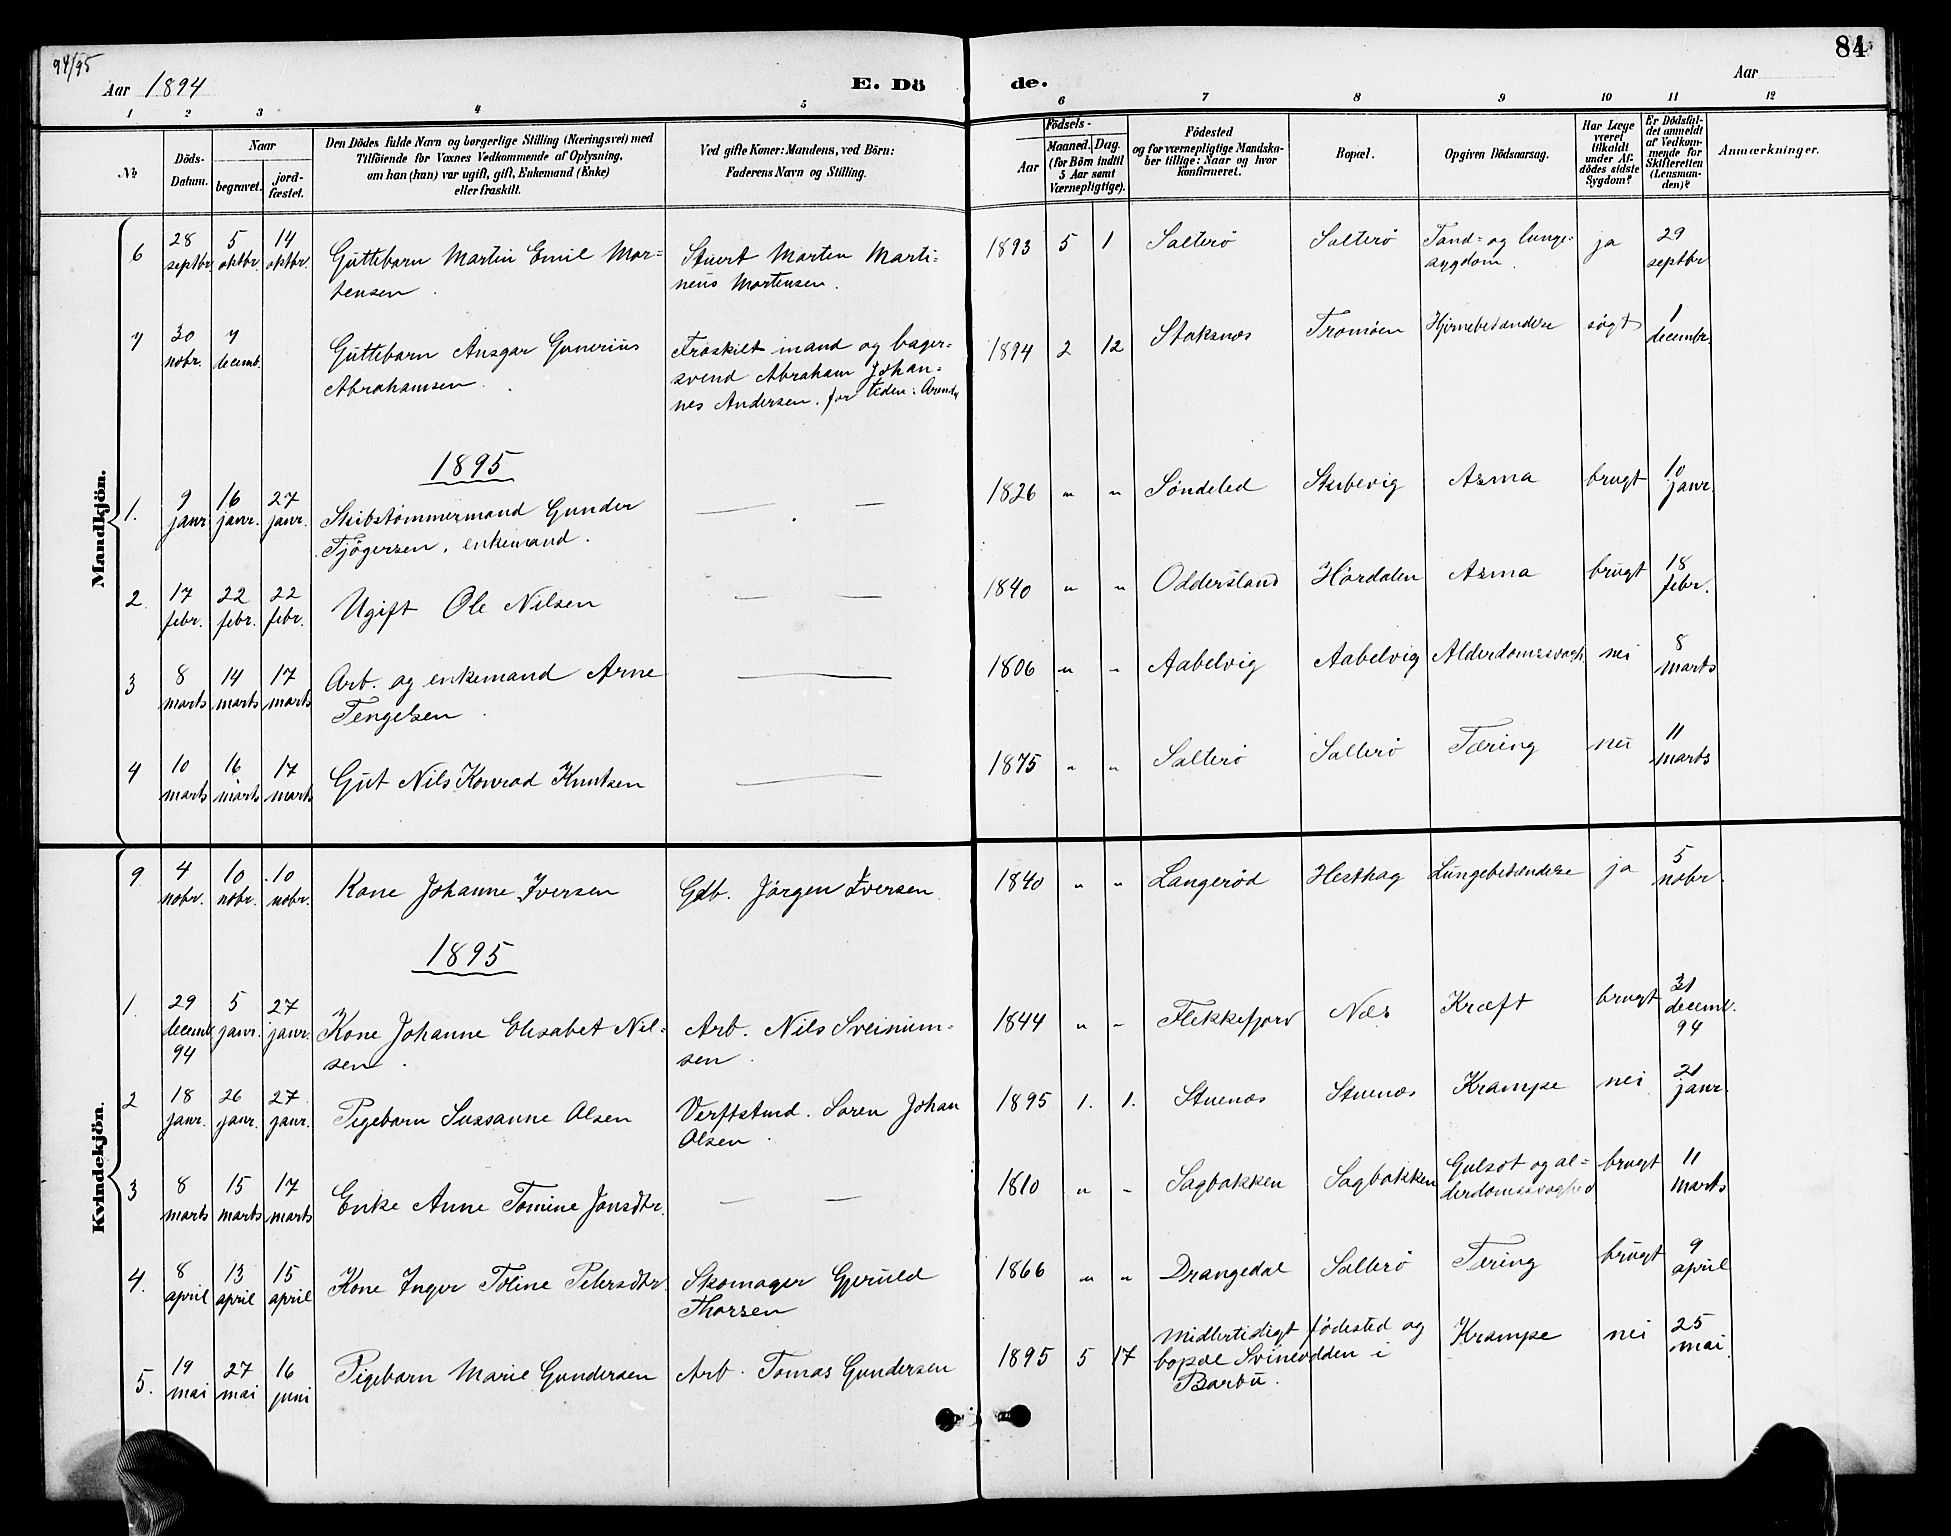 94/95
Aar 1894
E. Dö
de.
Aar
84
1 2 3 4 5 6 7 8 9 10 11 12
№
Döds-
Datum.
Naar
begravet.
jord-
fæstet.
Den Dödes fulde Navn og borgerlige Stilling (Næringsvei) med
Tilföiende for Voxnes Vedkommende af Oplysning,
om han (hun) var ugift, gift, Enkemand (Enke)
eller fraskilt.
Ved gifte Koner: Mandens, ved Börn:
Faderens Navn og Stilling.
Födsels-
Aar
Maaned. Dag.
(for Börn indtil
5 Aar samt
Værnepligtige).
Födested
og for værnepligtige Mandska-
ber tillige: Naar og hvor
konfirmeret.
Bopæl.
Opgiven Dödsaarsag.
Har Læge
været
tilkaldt
under Af-
dödes sidste
Sygdom?
Er Dödsfal-
det anmeldt
af Vedkom-
mende for
Skifteretten
(Lensman-
den)?
Anmærkninger.
Mandkjön.
6 28 5 14 Guttebarn Martin Emil Mor- Stuert Morten Marti- 1893 5 1 Salterö Salterö Tand- og lunge- ja 29
septbr. oktbr. oktbr. tensen. neus Mortensen. sygdom. septbr
7 30 7 Guttebarn Ansgar Gunerius Fraskilt mand og bager- 1894 2 12 Staksnæs Tromöen Hjernebetændelse søgt 1
nobr. decemb. Abrahamsen. svend Abraham Johan- decembr.
nes Andersen. for tiden: Arendal
1895
1. 9 16 27 Skibstömmermand Gunder — — 1826 " " Söndeled Skubevig Asma brugt 10
janr. janr. janr. Tjögersen, enkemand. janr.
2. 17 22 22 Ugift Ole Nilsen — — 1840 " " Oddersland Hørdalen Asma brugt 18
febr. febr. febr. febr.
3 8 14 17 Arb. og enkemand Arne — 1806 " " Aabelvig Aabelvig Alderdomssvagh. nei 8
marts marts marts Tengelsen. marts
4 10 16 17 Gut Nils Konrad Knutsen — 1875 " " Salterö Salterö Tæring nei 11
marts marts marts marts
Kvindekjön.
9 4 10 10 Kone Johanne Iversen Gdb. Jörgen Iversen. 1840 " " Langeröd Hesthag Lungebetændelse ja 5
nobr. nobr. nobr. nobr.
1895
1. 29 5 27 Kone Johanne Elisabet Nil- Arb. Nils Sveinum- 1844 " " Flekkefjord Næs Kræft brugt 31
decemb. janr. janr. sen. sen. decemb.
94 94
2 18 26 27 Pigebarn Sussanne Olsen Verftstmd. Soren Johan 1895 1. 1. Stuenæs Stuenæs Krampe nei 21
janr. janr. janr. Olsen. janr.
3 8 15 17 Enke Anne Tomine Jonsdtr. — — 1810 " " Sagbakken Sagbakken Gulsot og al- brugt 11
marts marts marts derdomssvaghed marts
4. 8 13 15 Kone Inger Toline Petersdtr. Skomager Gjeruld 1866 " " Drangedal Salterö Tæring brugt 9
april april april Thorsen april
5. 19 27 16 Pigebarn Marie Gundersen Arb. Tomas Gundersen 1895 5 17 Midlertidigt födested og Krampe nei 25
mai mai juni bopæl Svineodden i mai.
Barbu.